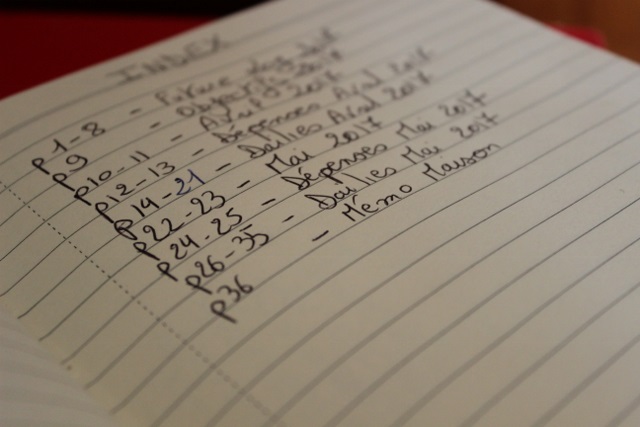 INDEX
p1-8 - Future Log 2017
p9 - Objectifs 2017
p10-11 - Avril 2017
p12-13 - Dépenses Avril 2017
p14-21 - Dailies Avril 2017
p22-23 - Mai 2017
p24-25 - Dépenses Mai 2017
p26-35 - Dailies Mai 2017
p36 - Mémo Maison